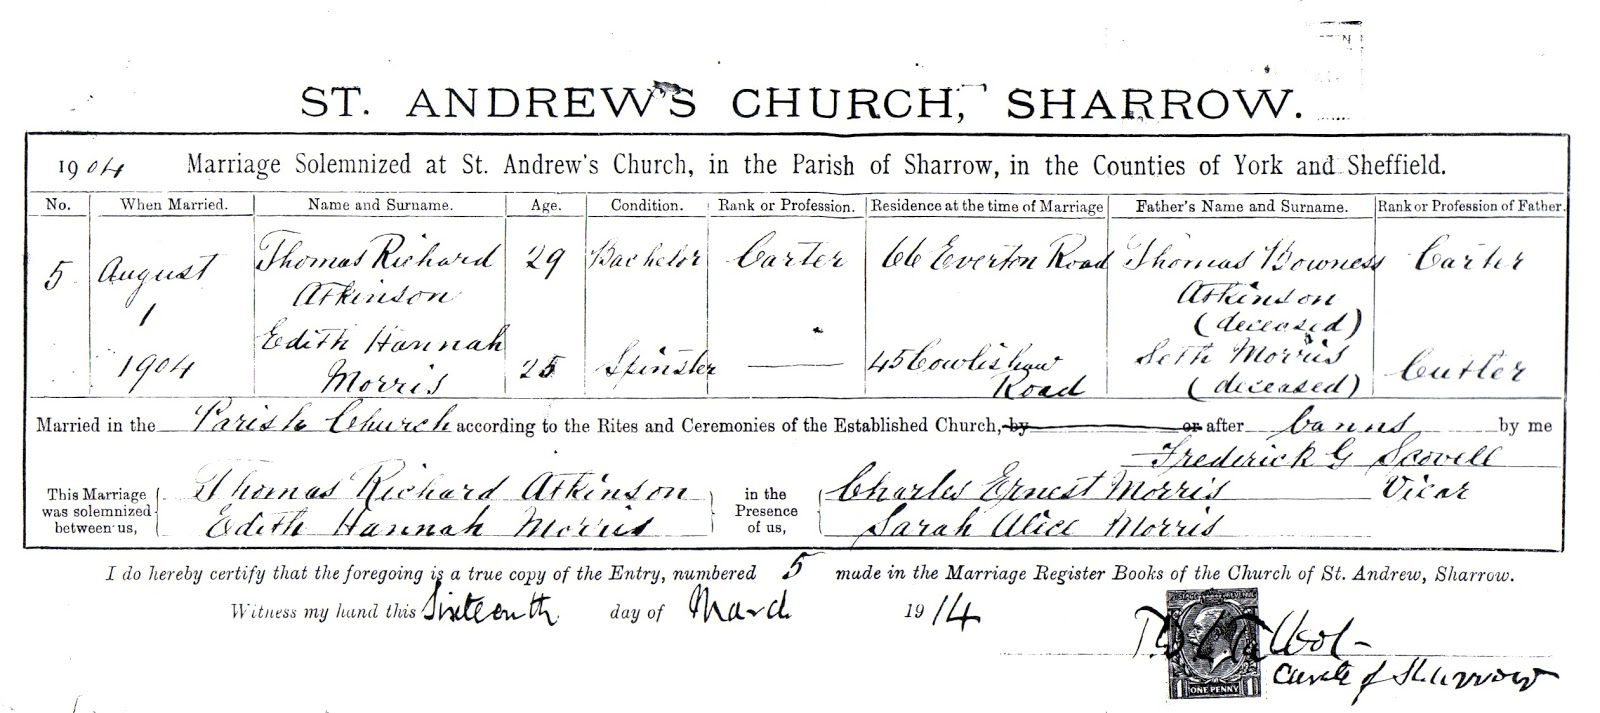 ST. ANDREW'S CHURCH, SHARROW.
1904 Marriage Solemnized at St. Andrew's Church, in the Parish of Sharrow, in the Counties of York and Sheffield.
No. When Married. Name and Surname. Age. Condition. Rank or Profession. Residence at the time of Marriage Father's Name and Surname. Rank or Profession of Father.
5 August 1 1904 Thomas Richard Atkinson 29 Bachelor Carter 66 Everton Road Thomas Bowness Atkinson (deceased) Carter
Edith Hannah Morris 25 Spinster — 45 Cowlishaw Road Seth Morris (deceased) Cutler
Married in the Parish Church according to the Rites and Ceremonies of the Established Church, by or after banns by me
Frederick G Scovell
Vicar
This Marriage was solemnized between us, Thomas Richard Atkinson
Edith Hannah Morris
in the Presence of us, Charles Ernest Morris
Sarah Alice Morris
I do hereby certify that the foregoing is a true copy of the Entry, numbered 5 made in the Marriage Register Books of the Church of St. Andrew, Sharrow.
Witness my hand this Sixteenth day of March 1914
Talbot
Curate of Sharrow
POSTAGE REVENUE
1 ONE PENNY 1